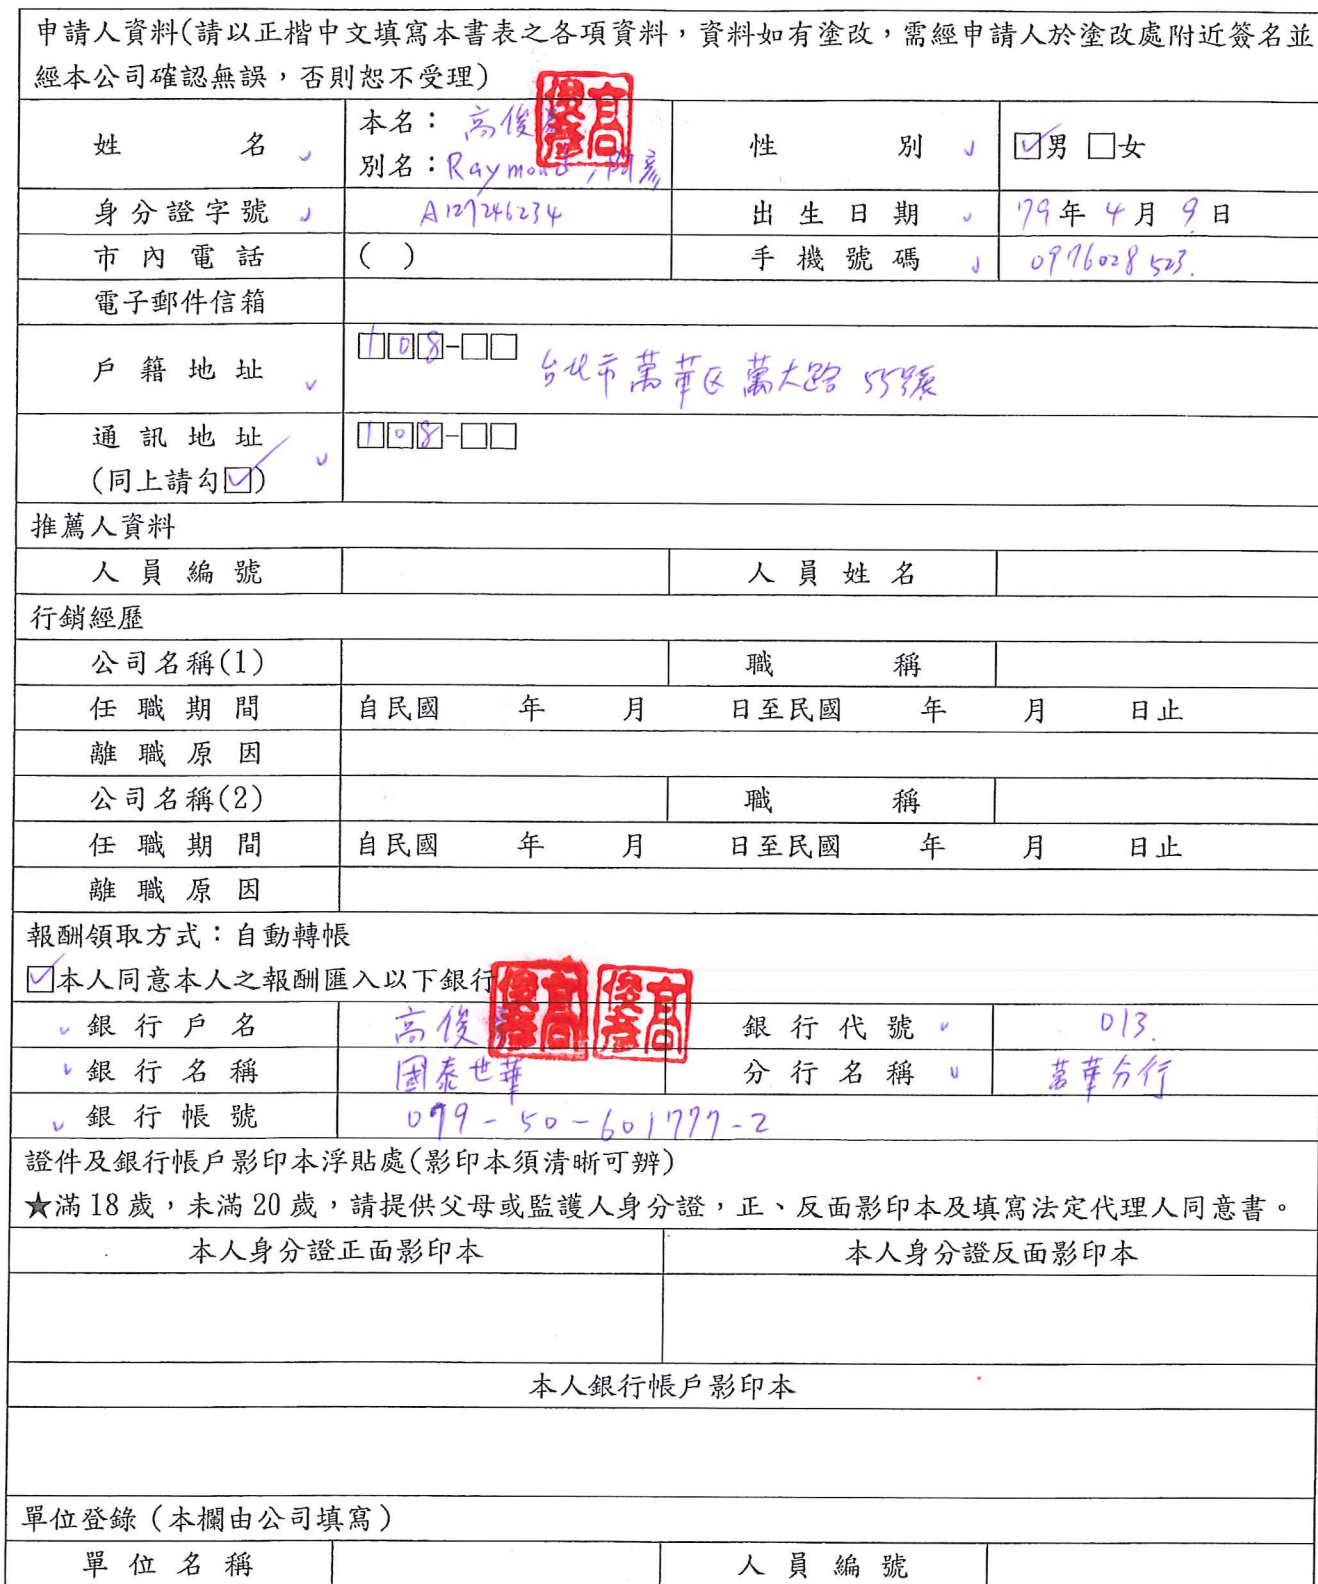 申請人資料(請以正楷中文填寫本書表之各項資料，資料如有塗改，需經申請人於塗改處附近簽名並
經本公司確認無誤，否則恕不受理)
姓 名 本名： 高俊 性 別 ☑男 □女
別名：Raymond, 阿彥
身分證字號 A127246234 出生日期 79年4月9日
市內電話 ( ) 手機號碼 0976028523.
電子郵件信箱
戶籍地址 108-□□ 台北市萬華区萬大路55號
通訊地址 108-□□
(同上請勾☑)
推薦人資料
人員編號 人員姓名
行銷經歷
公司名稱(1) 職 稱
任職期間 自民國 年 月 日至民國 年 月 日止
離職原因
公司名稱(2) 職 稱
任職期間 自民國 年 月 日至民國 年 月 日止
離職原因
報酬領取方式：自動轉帳
☑本人同意本人之報酬匯入以下銀行
銀行戶名 高俊 銀行代號 013.
銀行名稱 國泰世華 分行名稱 萬華分行
銀行帳號 079-50-601777-2
證件及銀行帳戶影印本浮貼處(影印本須清晰可辨)
★滿18歲，未滿20歲，請提供父母或監護人身分證，正、反面影印本及填寫法定代理人同意書。
本人身分證正面影印本 本人身分證反面影印本
本人銀行帳戶影印本
單位登錄（本欄由公司填寫）
單位名稱 人員編號